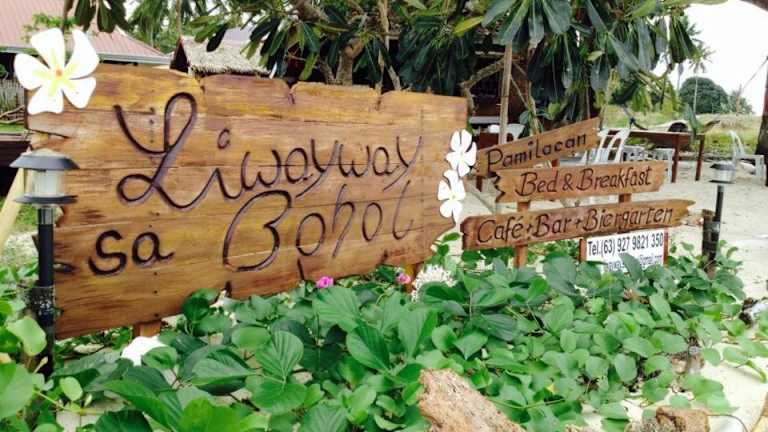 Liwayway
sa Bohol
Pamilacan
Bed & Breakfast
Café + Bar + Biergarten
Tel.(63) 927 9821 350